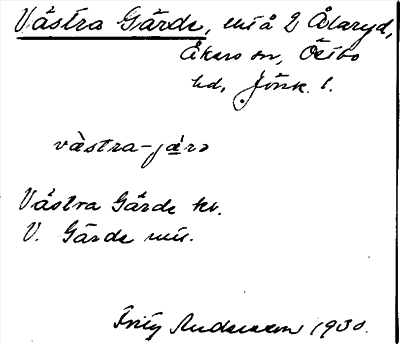 Västra Gärde, utå 2 Ålaryd,
Åkers sn, Östbo
hd, Jönk. l.
västra-jæ̀rə
Västra Gärde kv.
V. Gärde mū.
Fritz Andersson 1930.